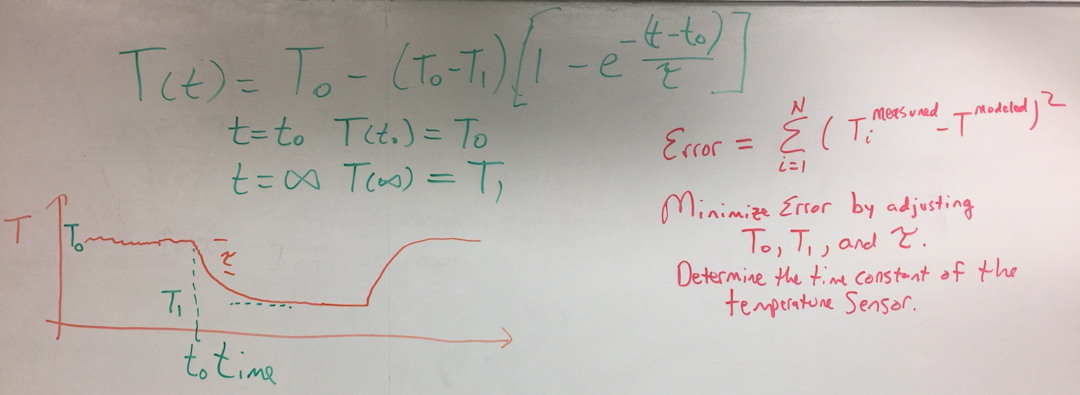 T(t) = T₀ - (T₀-T₁)[1 - e^(-(t-t₀)/τ)]
t=t₀ T(t₀) = T₀
t=∞ T(∞) = T₁
Error = Σ_{i=1}^{N} (T_i^measured - T^modeled)²
Minimize Error by adjusting
T₀, T₁, and τ.
Determine the time constant of the
temperature Sensor.
T
T₀
τ
T₁
t₀ time